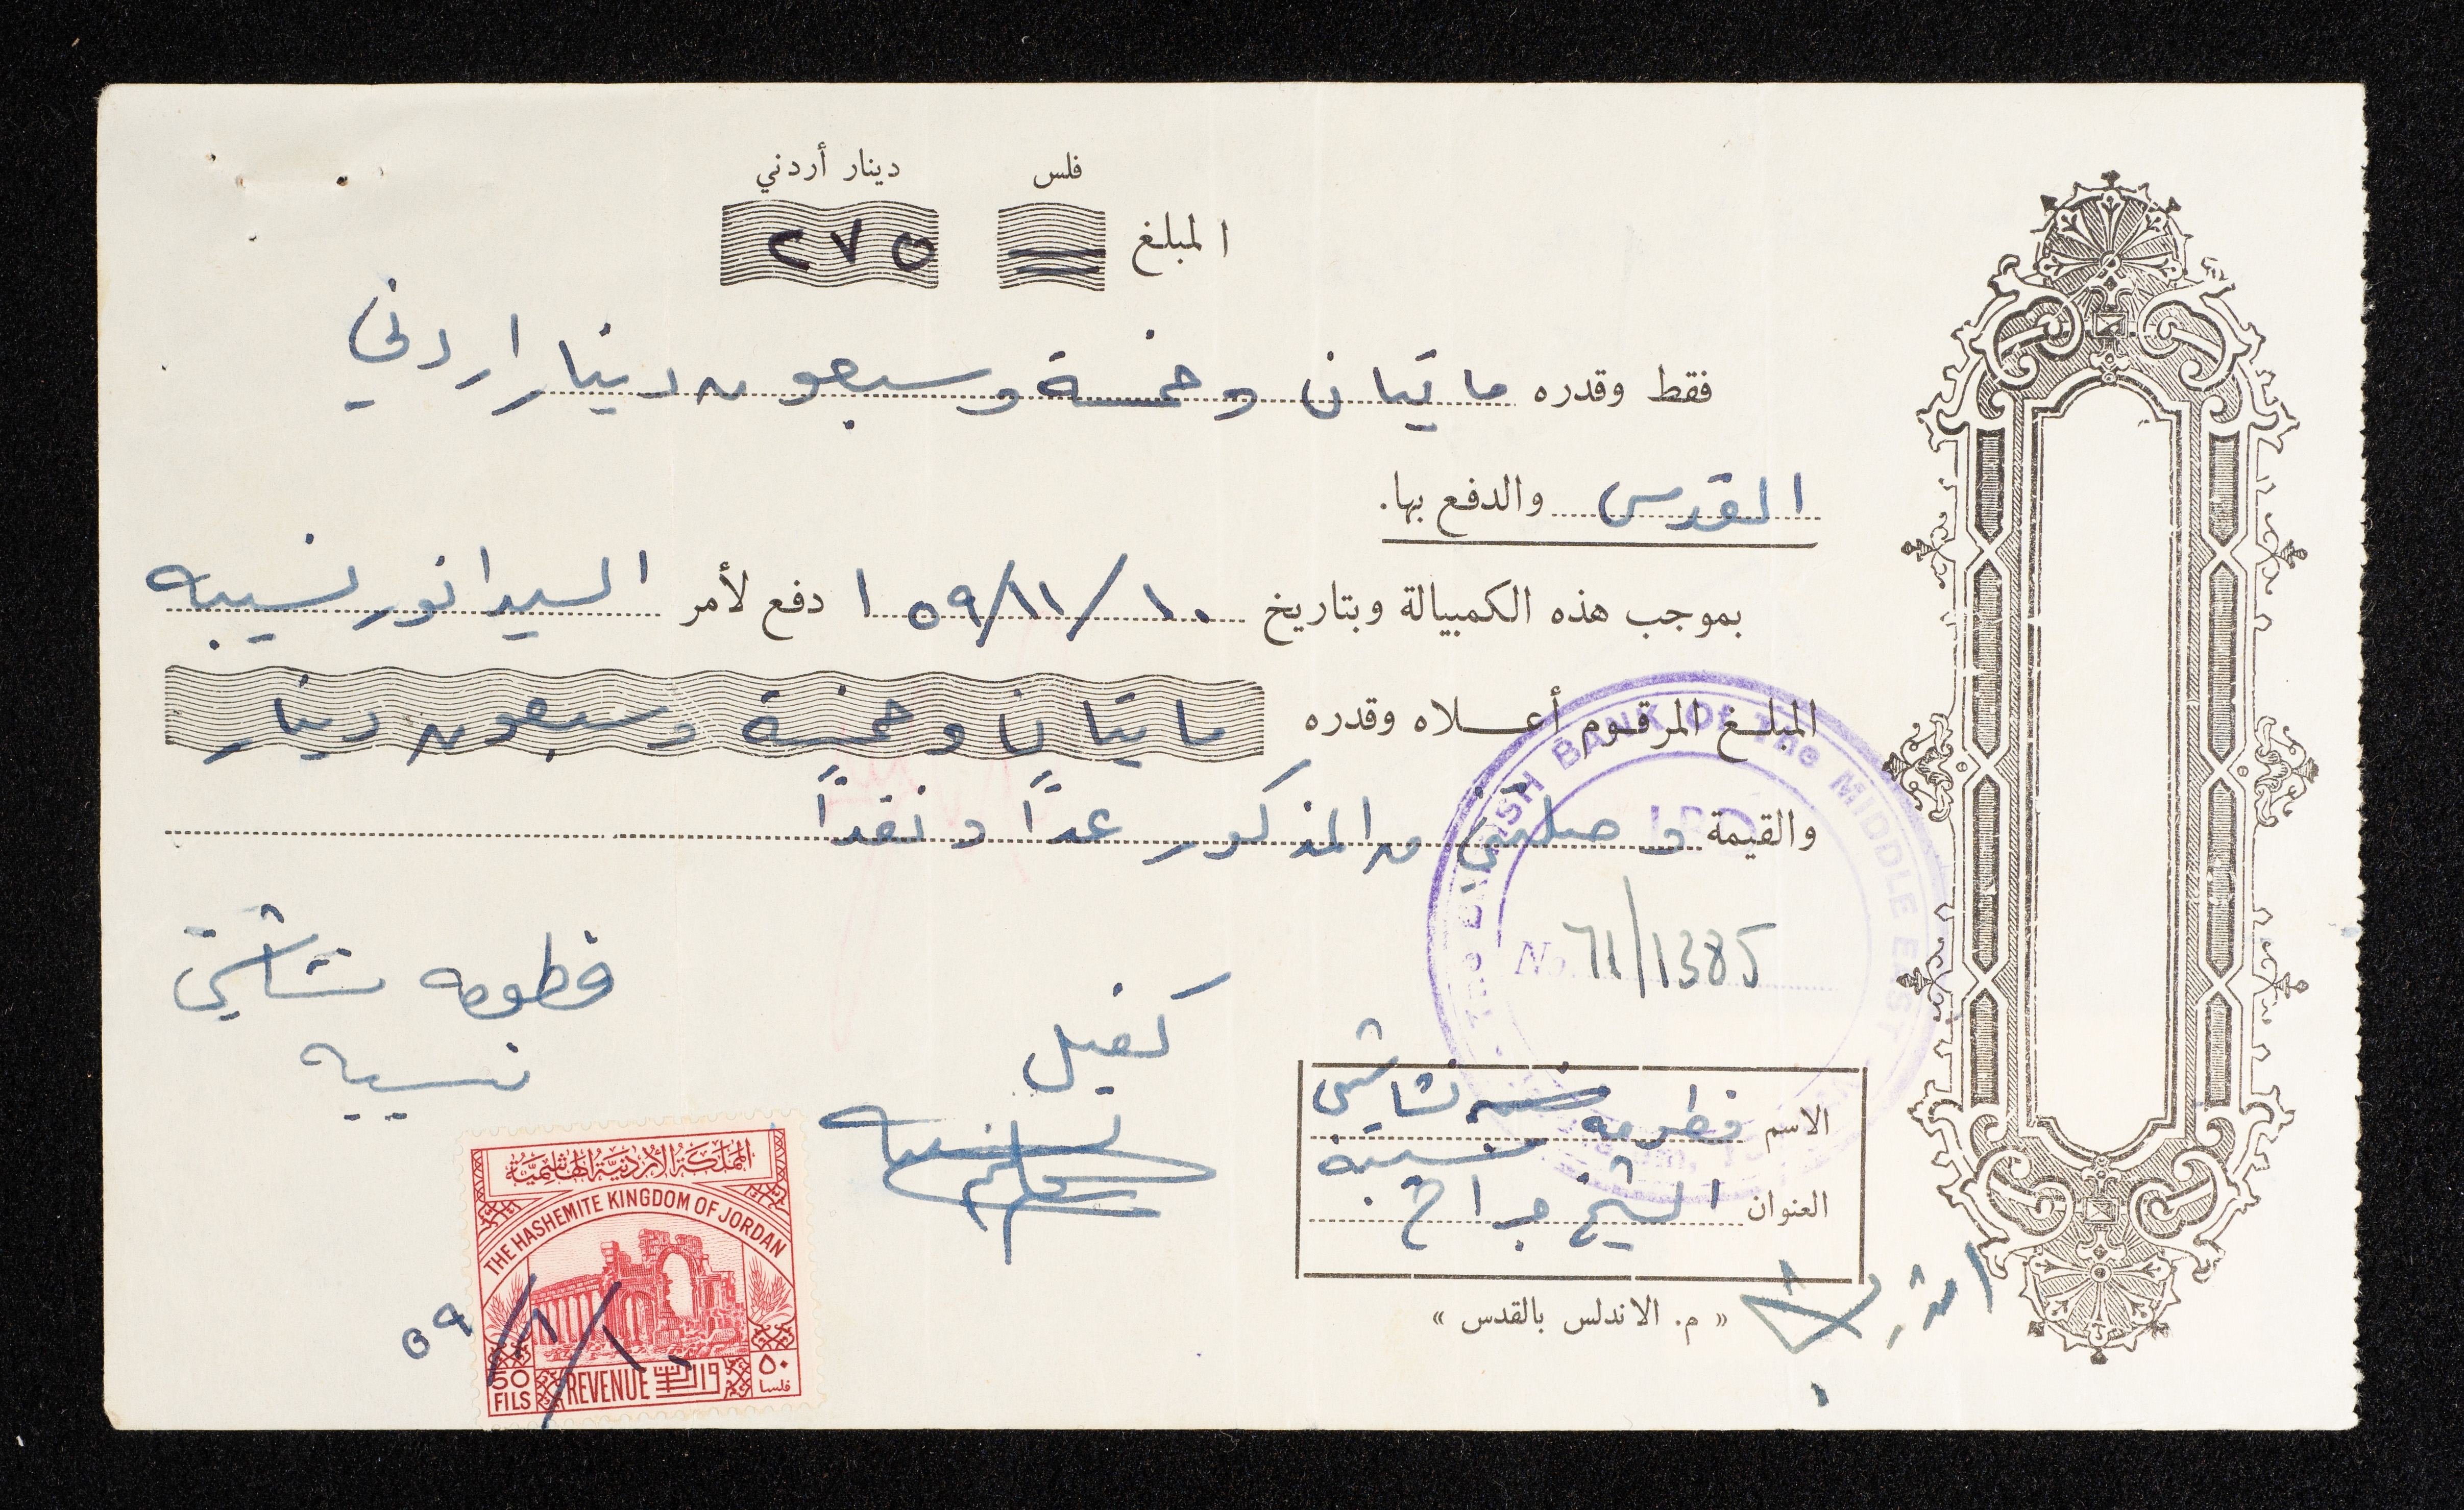 فلس دينار أردني
المبلغ = ٢٧٥
فقط وقدره مايتان وخمسة وسبعون دينار اردني
القدس والدفع بها.
بموجب هذه الكمبيالة وبتاريخ ١٠/١١/٥٩ ١ دفع لأمر السيد انور نسيبه
المبلغ المرقوم أعلاه وقدره مايتان وخمسة وسبعون دينار
والقيمة وصلتني من المذكور عداً ونقداً
The BRITISH BANK OF The MIDDLE EAST
LBD
No. 71/1385
فطومه نشاشيبي
نسيبه
كفيل
نسيبه
الاسم فطومه نشاشيبي
نسيبه
العنوان الشيخ جراح
« م. الاندلس بالقدس »
المملكة الأردنية الهاشمية
THE HASHEMITE KINGDOM OF JORDAN
50 FILS REVENUE واردات ٥٠ فلسا
١٠/٨/٥٩